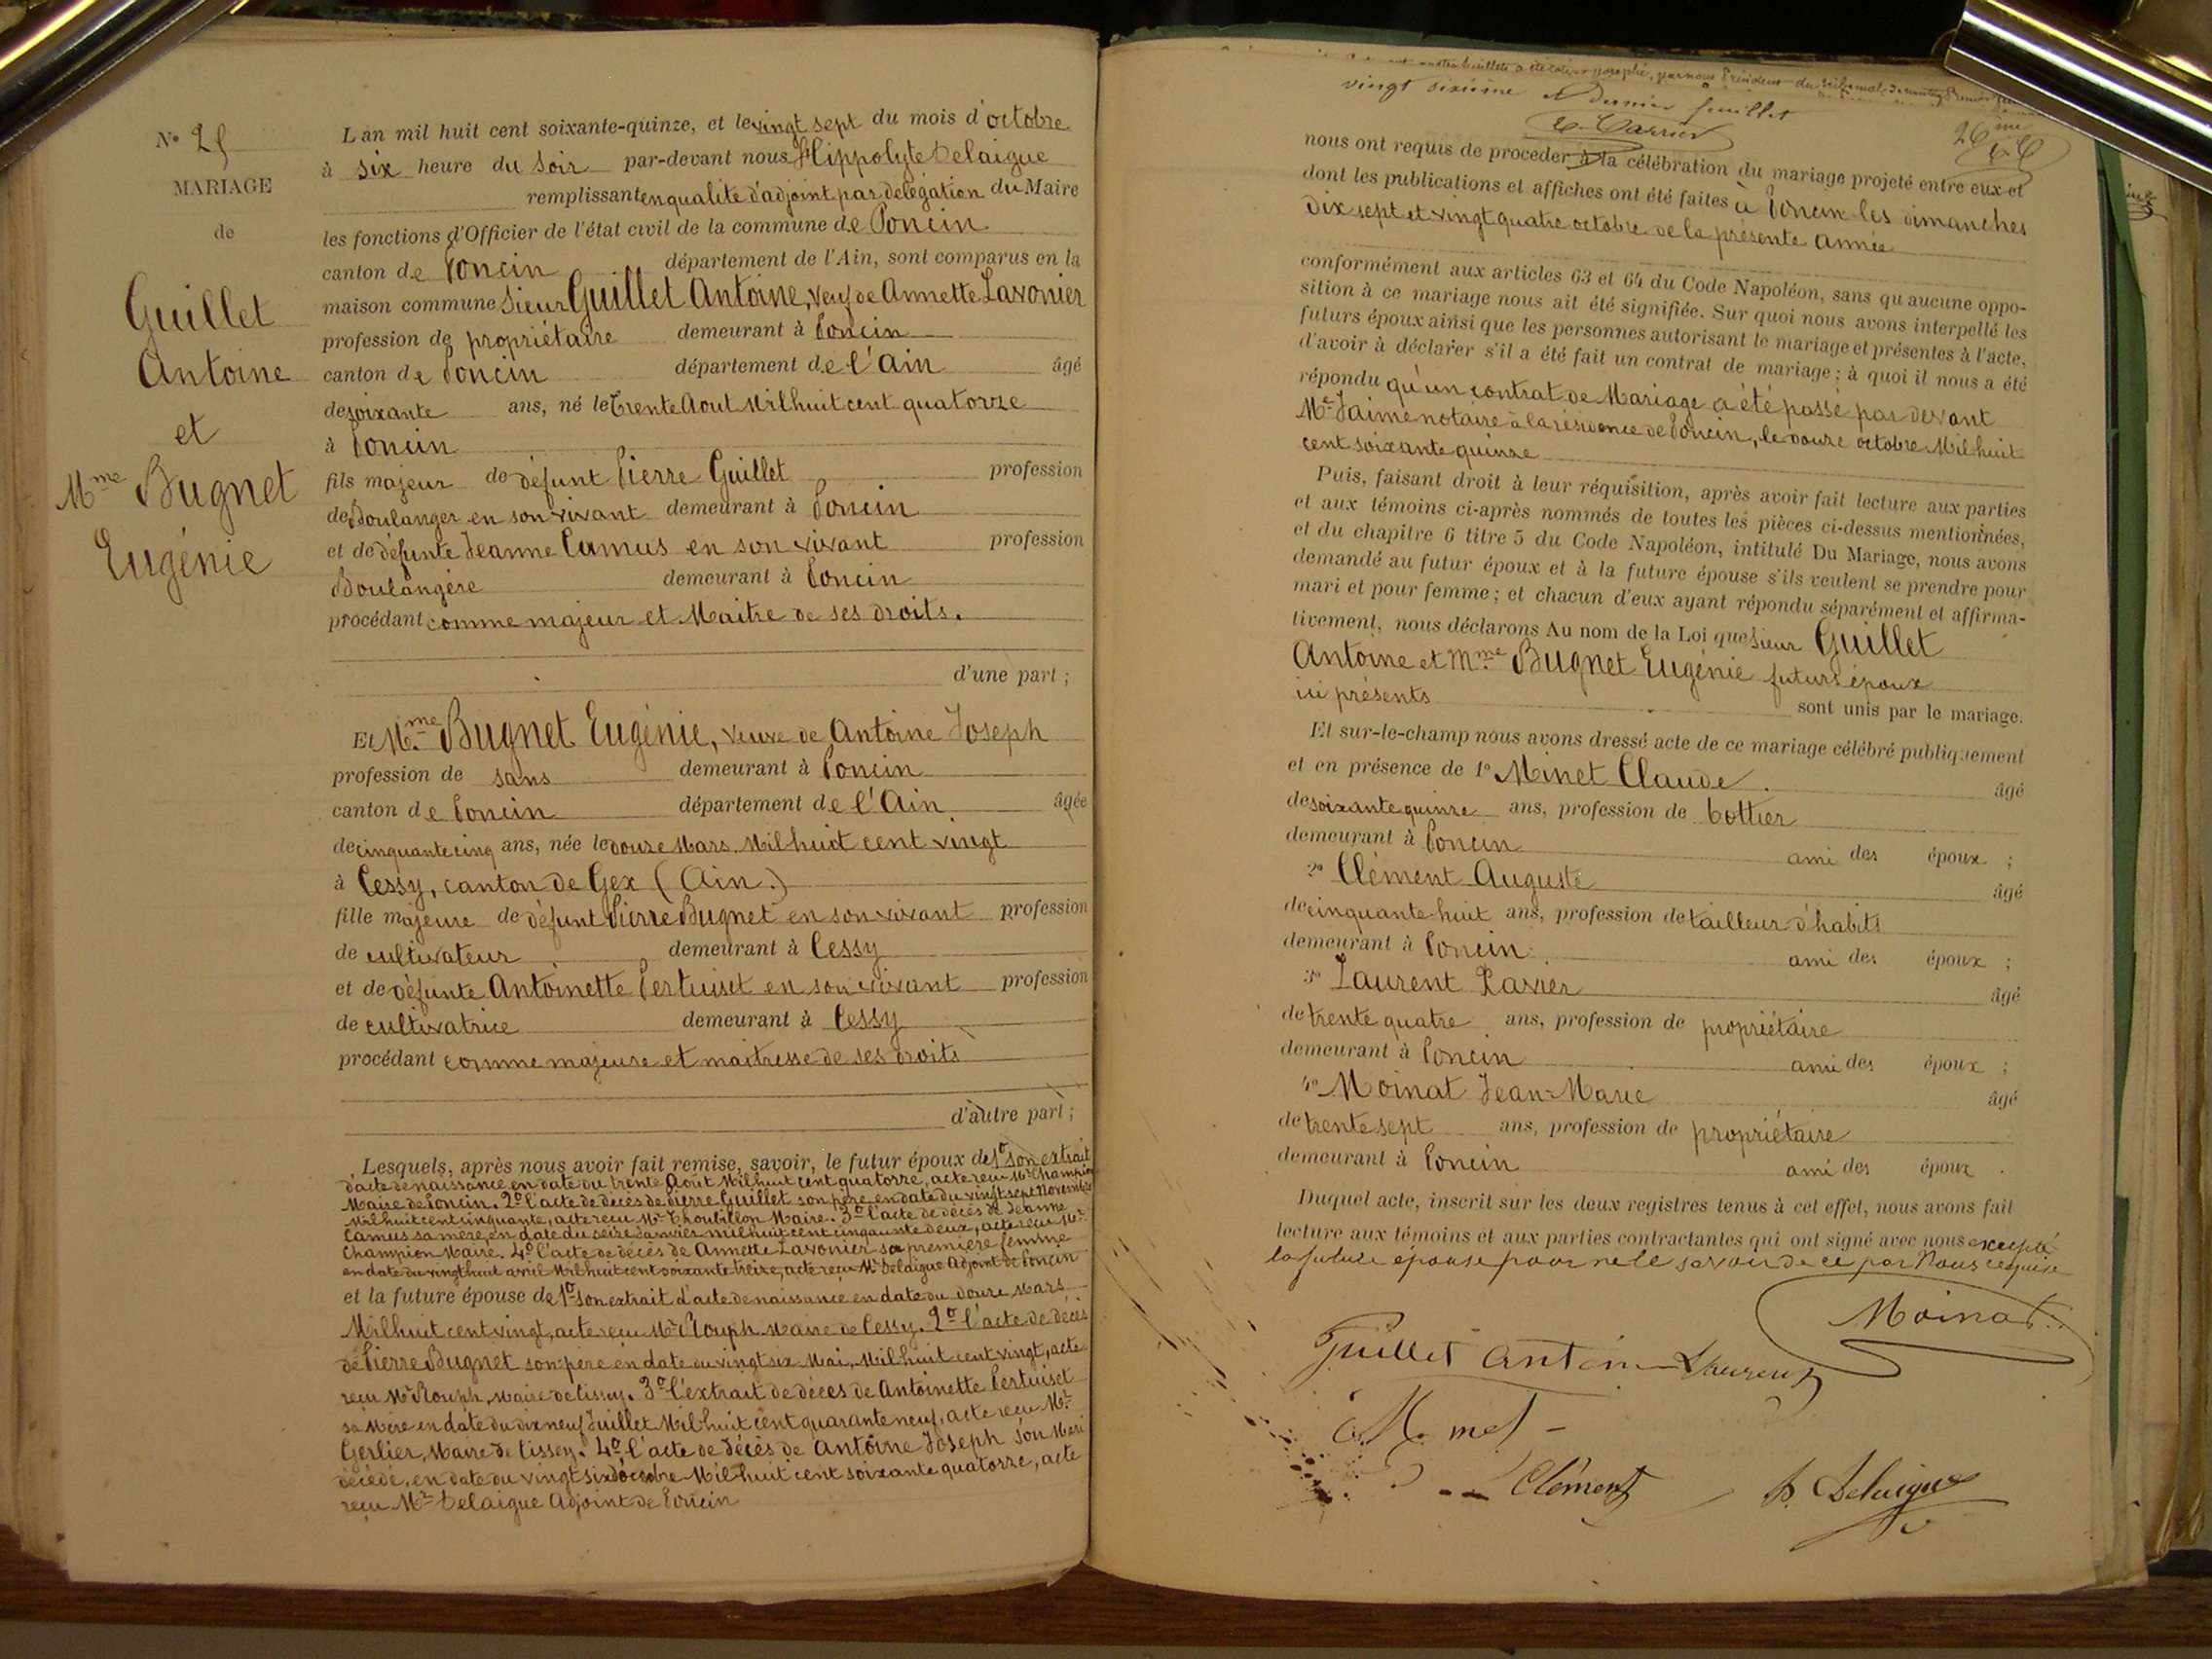 N° 25
MARIAGE
de
Guillet
Antoine
et
Mme Bugnet
Eugénie
L'an mil huit cent soixante-quinze, et le vingt sept du mois d'octobre
à six heure du soir par-devant nous Hippolyte Delaigue
remplissant en qualité d'adjoint par délégation du Maire
les fonctions d'Officier de l'état civil de la commune de Poncin
canton de Poncin département de l'Ain, sont comparus en la
maison commune Sieur Guillet Antoine, Veuf de Annette Lavonier
profession de propriétaire demeurant à Poncin
canton de Poncin département de l'Ain âgé
de soixante ans, né le trente Aout Mil huit cent quatorze
à Poncin
fils majeur de défunt Pierre Guillet profession
de Boulanger en son vivant demeurant à Poncin
et de défunte Jeanne Camus en son vivant profession
Boulangère demeurant à Poncin
procédant comme majeur et Maitre de ses droits.
d'une part ;
Et Mme Bugnet Eugénie, veuve de Antoine Joseph
profession de sans demeurant à Poncin
canton de Poncin département de l'Ain âgée
de cinquante cinq ans, née le douze Mars Mil huit cent vingt
à Cessy, canton de Gex (Ain.)
fille majeure de défunt Pierre Bugnet en son vivant profession
de cultivateur demeurant à Cessy
et de défunte Antoinette Pertuiset en son vivant profession
de cultivatrice demeurant à Cessy
procédant comme majeure et maitresse de ses droits
d'autre part ;
Lesquels, après nous avoir fait remise, savoir, le futur époux de 1° son extrait
d'acte de naissance en date du trente Août Mil huit cent quatorze, acte reçu Mr Champion
Maire de Poncin. 2° l'acte de décès de Pierre Guillet son père en date du vingt sept Novembre
Mil huit cent cinquante, acte reçu Mr Thoubillon Maire. 3° l'acte de décès de Jeanne
Camus sa mère, en date du seize Janvier mil huit cent cinquante deux, acte reçu Mr
Champion Maire. 4° l'acte de décès de Annette Lavonier sa première femme
en date du vingt huit avril Mil huit cent soixante treize, acte reçu Mr Delaigue Adjoint de Poncin
et la future épouse de 1° son extrait d'acte de naissance en date du douze Mars
Mil huit cent vingt, acte reçu Mr Rouph Maire de Cessy. 2° l'acte de décès
de Pierre Bugnet son père en date du vingt six Mai, Mil huit cent vingt, acte
reçu Mr Rouph, Maire de Cissey. 3° l'extrait de décès de Antoinette Pertuiset
sa Mère en date du dix neuf Juillet Mil huit cent quarante neuf, acte reçu Mr
Gerlier, Maire de Cissey. 4° l'acte de décès de Antoine Joseph son Mari
décédé, en date du vingt six d'octobre Mil huit cent soixante quatorze, acte
reçu Mr Delaigue Adjoint de Poncin
vingt sixième et dernier feuillet
26me
nous ont requis de proceder à la célébration du mariage projeté entre eux et
dont les publications et affiches ont été faites à Poncin les dimanches
Dix sept et vingt quatre octobre de la présente Année
conformément aux articles 63 et 64 du Code Napoléon, sans qu'aucune oppo-
sition à ce mariage nous ait été signifiée. Sur quoi nous avons interpellé les
futurs époux ainsi que les personnes autorisant le mariage et présentes à l'acte,
d'avoir à déclarer s'il a été fait un contrat de mariage ; à quoi il nous a été
répondu qu'un contrat de Mariage a été passé par devant
Me Jaime notaire à la résidence de Poncin, le douze octobre Mil huit
cent soixante quinze
Puis, faisant droit à leur réquisition, après avoir fait lecture aux parties
et aux témoins ci-après nommés de toutes les pièces ci-dessus mentionnées,
et du chapitre 6 titre 5 du Code Napoléon, intitulé Du Mariage, nous avons
demandé au futur époux et à la future épouse s'ils veulent se prendre pour
mari et pour femme ; et chacun d'eux ayant répondu séparément et affirma-
tivement, nous déclarons Au nom de la Loi que Sieur Guillet
Antoine et Mme Bugnet Eugénie futurs époux
ici présents sont unis par le mariage.
Et sur-le-champ nous avons dressé acte de ce mariage célébré publiquement
et en présence de 1° Minet Claude. âgé
de soixante quinze ans, profession de bottier
demeurant à Poncin ami des époux ;
2° Clément Auguste âgé
de cinquante-huit ans, profession de tailleur d'habits
demeurant à Poncin ami des époux ;
3° Laurent Xavier âgé
de trente quatre ans, profession de propriétaire
demeurant à Poncin ami des époux ;
4° Moinat Jean-Marie âgé
de trente sept ans, profession de propriétaire
demeurant à Poncin ami des époux.
Duquel acte, inscrit sur les deux registres tenus à cet effet, nous avons fait
lecture aux témoins et aux parties contractantes qui ont signé avec nous excepté
la future épouse pour ne le savoir de ce par Nous requise
Moinat
Guillet Antoine Laurent
Minet
Clément H. Delaigue